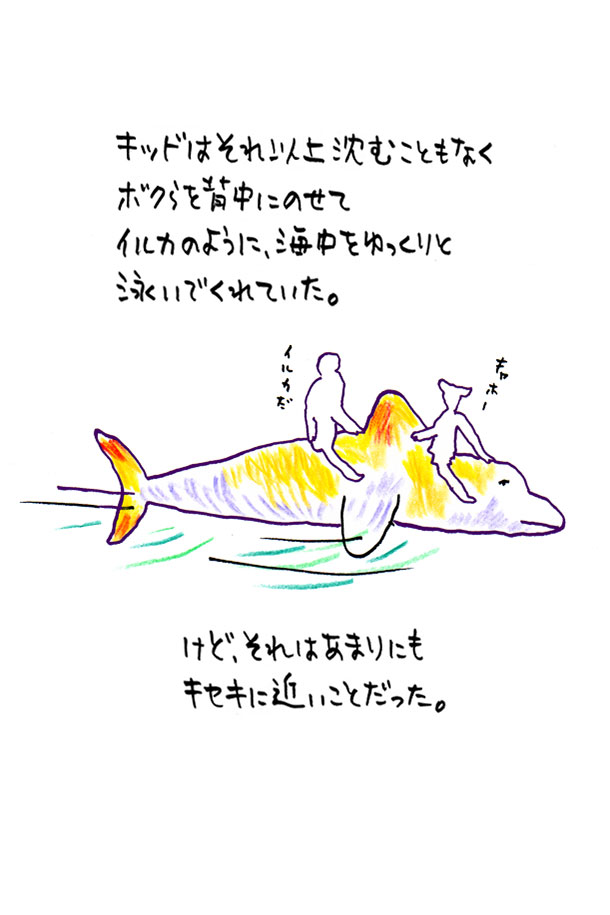 キッドはそれ以上沈むこともなく
ボクらを背中にのせて
イルカのように、海中をゆっくりと
泳いでくれていた。
イルカだ
キャホー
けど、それはあまりにも
キセキに近いことだった。